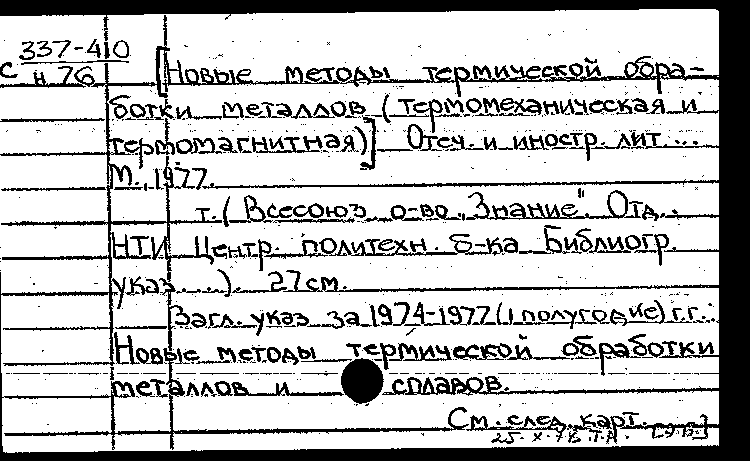 с 337-410
н 76
[Новые методы термической обра-
ботки металлов (термомеханическая и
термомагнитная)] Отеч. и иностр. лит...
М., 1977.
т. (Всесоюз. о-во „Знание". Отд.
НТИ Центр. политехн. б-ка Библиогр.
указ. ...). 27см.
Загл. указ за 1974-1977 (I полугодие) г.г.:
Новые методы термической обработки
металлов и сплавов.
См. след. карт.
25-X-78